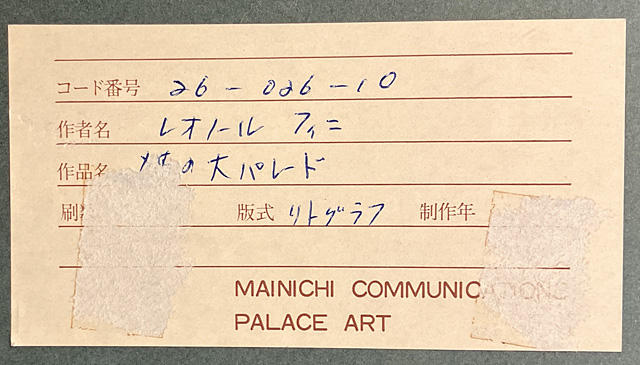 コード番号 26-026-10
作者名 レオノール フィニ
作品名 猫の大パレード
刷 版式 リトグラフ 制作年
MAINICHI COMMUNICATIONS
PALACE ART